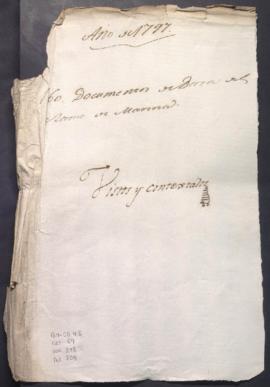 Año de 1797.
160. Documentos de Data del
Ramo de Marina.
Vistos y contextados